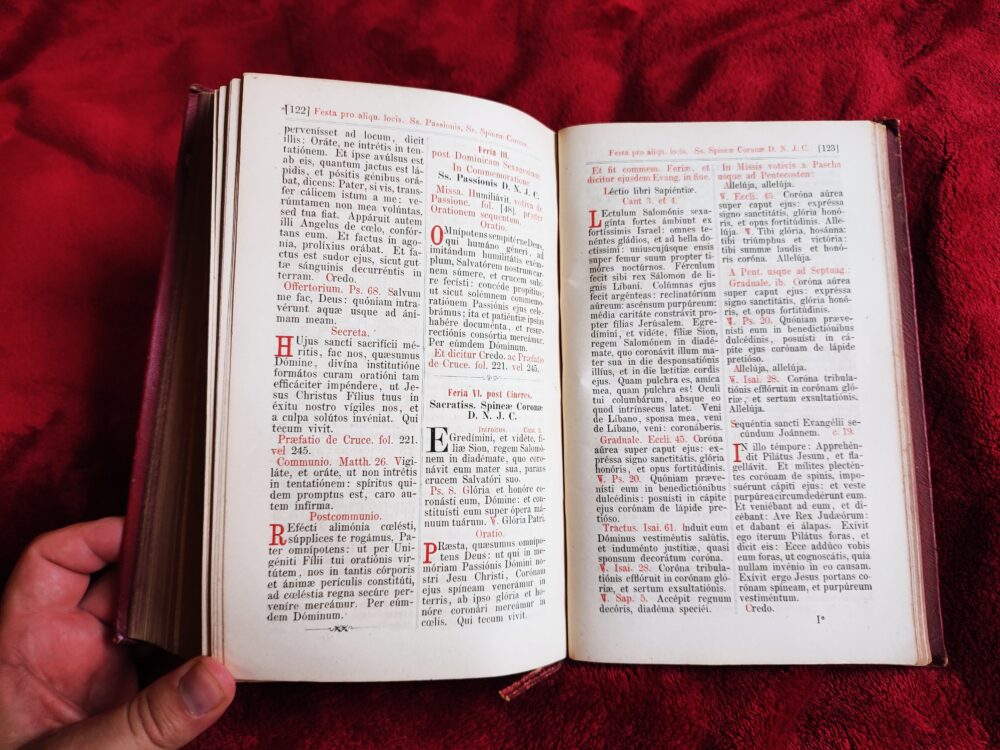 [122] Festa pro aliqu. locis. Ss. Passionis, Ss. Spineæ Coronæ
pervenísset ad locum, dicit
illis: Oráte, ne intrétis in ten-
tatiónem. Et ipse avúlsus est
ab eis, quantum jactus est lá-
pidis, et pósitis génibus orá-
bat, dicens: Pater, si vis, trans-
fer cálicem istum a me: ve-
rúmtamen non mea volúntas,
sed tua fiat. Appáruit autem
illi Angelus de cœlo, confór-
tans eum. Et factus in ago-
nía, prolíxius orábat. Et fa-
ctus est sudor ejus, sicut gut-
tæ sánguinis decurréntis in
terram. Credo.
Offertorium. Ps. 68. Salvum
me fac, Deus: quóniam intra-
vérunt aquæ usque ad áni-
mam meam.
Secreta.
HUjus sancti sacrifícii mé-
ritis, fac nos, quæsumus
Dómine, divína institutióne
formátos curam oratióni tam
efficáciter impéndere, ut Je-
sus Christus Fílius tuus in
éxitu nostro vígiles nos, et
a culpa solútos invéniat. Qui
tecum vivit.
Præfatio de Cruce. fol. 221.
vel 245.
Communio. Matth. 26. Vigi-
láte, et oráte, ut non intrétis
in tentatiónem: spíritus qui-
dem promptus est, caro au-
tem infírma.
Postcommunio.
REfécti alimónia cœlésti,
súpplices te rogámus, Pa-
ter omnípotens: ut per Uni-
géniti Fílii tui oratiónis vir-
tútem, nos in tantis córporis
et ánimæ perículis constitúti,
ad cœléstia regna secúre per-
veníre mereámur. Per eúm-
dem Dóminum.
Feria III.
post Dominicam Sexagesimæ.
In Commemoratione
Ss. Passionis D. N. J. C.
Missa. Humiliávit. votiva de
Passione. fol. [48]. præter
Orationem sequentem.
Oratio.
OMnípotens sempitérne Deus,
qui humáno géneri, ad
imitándum humilitátis exém-
plum, Salvatórem nostrum car-
nem súmere, et crucem subí-
re fecísti: concéde propítius;
ut sicut solémnem commemo-
ratiónem Passiónis ejus cele-
brámus; ita et patiéntiæ ipsíus
habére documénta, et resur-
rectiónis consórtia mereámur.
Per eúmdem Dóminum.
Et dicitur Credo. ac Præfatio
de Cruce. fol. 221. vel 245.
Feria VI. post Cineres.
Sacratiss. Spineæ Coronæ
D. N. J. C.
Introitus. Cant. 3.
EGredímini, et vidéte, fí-
liæ Sion, regem Salomó-
nem in diadémate, quo coro-
návit eum mater sua, parans
crucem Salvatóri suo.
Ps. 8. Glória et honóre co-
ronásti eum, Dómine: et con-
stituísti eum super ópera má-
nuum tuárum. V. Glória Patri.
Oratio.
PRæsta, quæsumus omnípo-
tens Deus: ut qui in me-
móriam Passiónis Dómini no-
stri Jesu Christi, Corónam
ejus spíneam venerámur in
terris, ab ipso glória et ho-
nóre coronári mereámur in
cœlis. Qui tecum vivit.
Festa pro aliqu. locis. Ss. Spineæ Coronæ D. N. J. C. [123]
Et fit commem. Feriæ, et
dicitur ejusdem Evang. in fine.
Léctio libri Sapiéntiæ.
Cant 3. et 4.
LEctulum Salomónis sexa-
gínta fortes ámbiunt ex
fortíssimis Israel: omnes te-
néntes gládios, et ad bella do-
ctíssimi: uniuscujúsque ensis
super femur suum propter ti-
móres noctúrnos. Férculum
fecit sibi rex Sálomon de li-
gnis Líbani. Colúmnas ejus
fecit argénteas: reclinatórium
áureum: ascénsum purpúreum:
média caritáte constrávit pro-
pter fílias Jerúsalem. Egre-
dímini, et vidéte, fíliæ Sion,
regem Salomónem in diadé-
mate, quo coronávit illum ma-
ter sua in die desponsatiónis
illíus, et in die lætítiæ cordis
ejus. Quam pulchra es, amíca
mea, quam pulchra es! Oculi
tui columbárum, absque eo
quod intrínsecus latet. Veni
de Líbano, sponsa mea, veni
de Líbano, veni: coronáberis.
Graduale. Eccli. 45. Coróna
áurea super caput ejus: ex-
préssa signo sanctitátis, glória
honóris, et opus fortitúdinis.
V. Ps. 20. Quóniam prævení-
sti eum in benedictiónibus
dulcédinis: posuísti in cápite
ejus corónam de lápide pre-
tióso.
Tractus. Isai. 61. Induit eum
Dóminus vestiméntis salútis,
et induménto justítiæ, quasi
sponsum decorátum coróna.
V. Isai. 28. Coróna tribula-
tiónis efflóruit in corónam gló-
riæ, et sertum exsultatiónis.
V. Sap. 5. Accépit regnum
decóris, diadéma speciéi.
In Missis votivis a Pascha
usque ad Pentecosten:
Allelúja, allelúja.
V. Eccli. 45. Coróna áurea
super caput ejus: expréssa
signo sanctitátis, glória honó-
ris, et opus fortitúdinis. Alle-
lúja. V. Tibi glória, hosánna:
tibi triúmphus et victória:
tibi summæ laudis et honó-
ris coróna. Allelúja.
A Pent. usque ad Septuag:
Graduale. ib. Coróna áurea
super caput ejus: expréssa
signo sanctitátis, glória honó-
ris, et opus fortitúdinis.
V. Ps. 20. Quóniam præve-
nísti eum in benedictiónibus
dulcédinis, posuísti in cá-
pite ejus corónam de lápide
pretióso.
Allelúja, allelúja.
V. Isai. 28. Coróna tribula-
tiónis efflóruit in corónam gló-
riæ, et sertum exsultatiónis.
Allelúja.
Sequéntia sancti Evangélii se-
cúndum Joánnem. c. 19.
IN illo témpore: Apprehén-
dit Pilátus Jesum, et fla-
gellávit. Et mílites plectén-
tes corónam de spinis, impo-
suérunt cápiti ejus: et veste
purpúrea circumdedérunt eum.
Et veniébant ad eum, et di-
cébant: Ave Rex Judæórum:
et dabant ei álapas. Exívit
ego íterum Pilátus foras, et
dicit eis: Ecce addúco vobis
eum foras, ut cognoscátis, quia
nullam invénio in eo causam.
Exívit ergo Jesus portans co-
rónam spíneam, et purpúreum
vestiméntum.
Credo.
I*